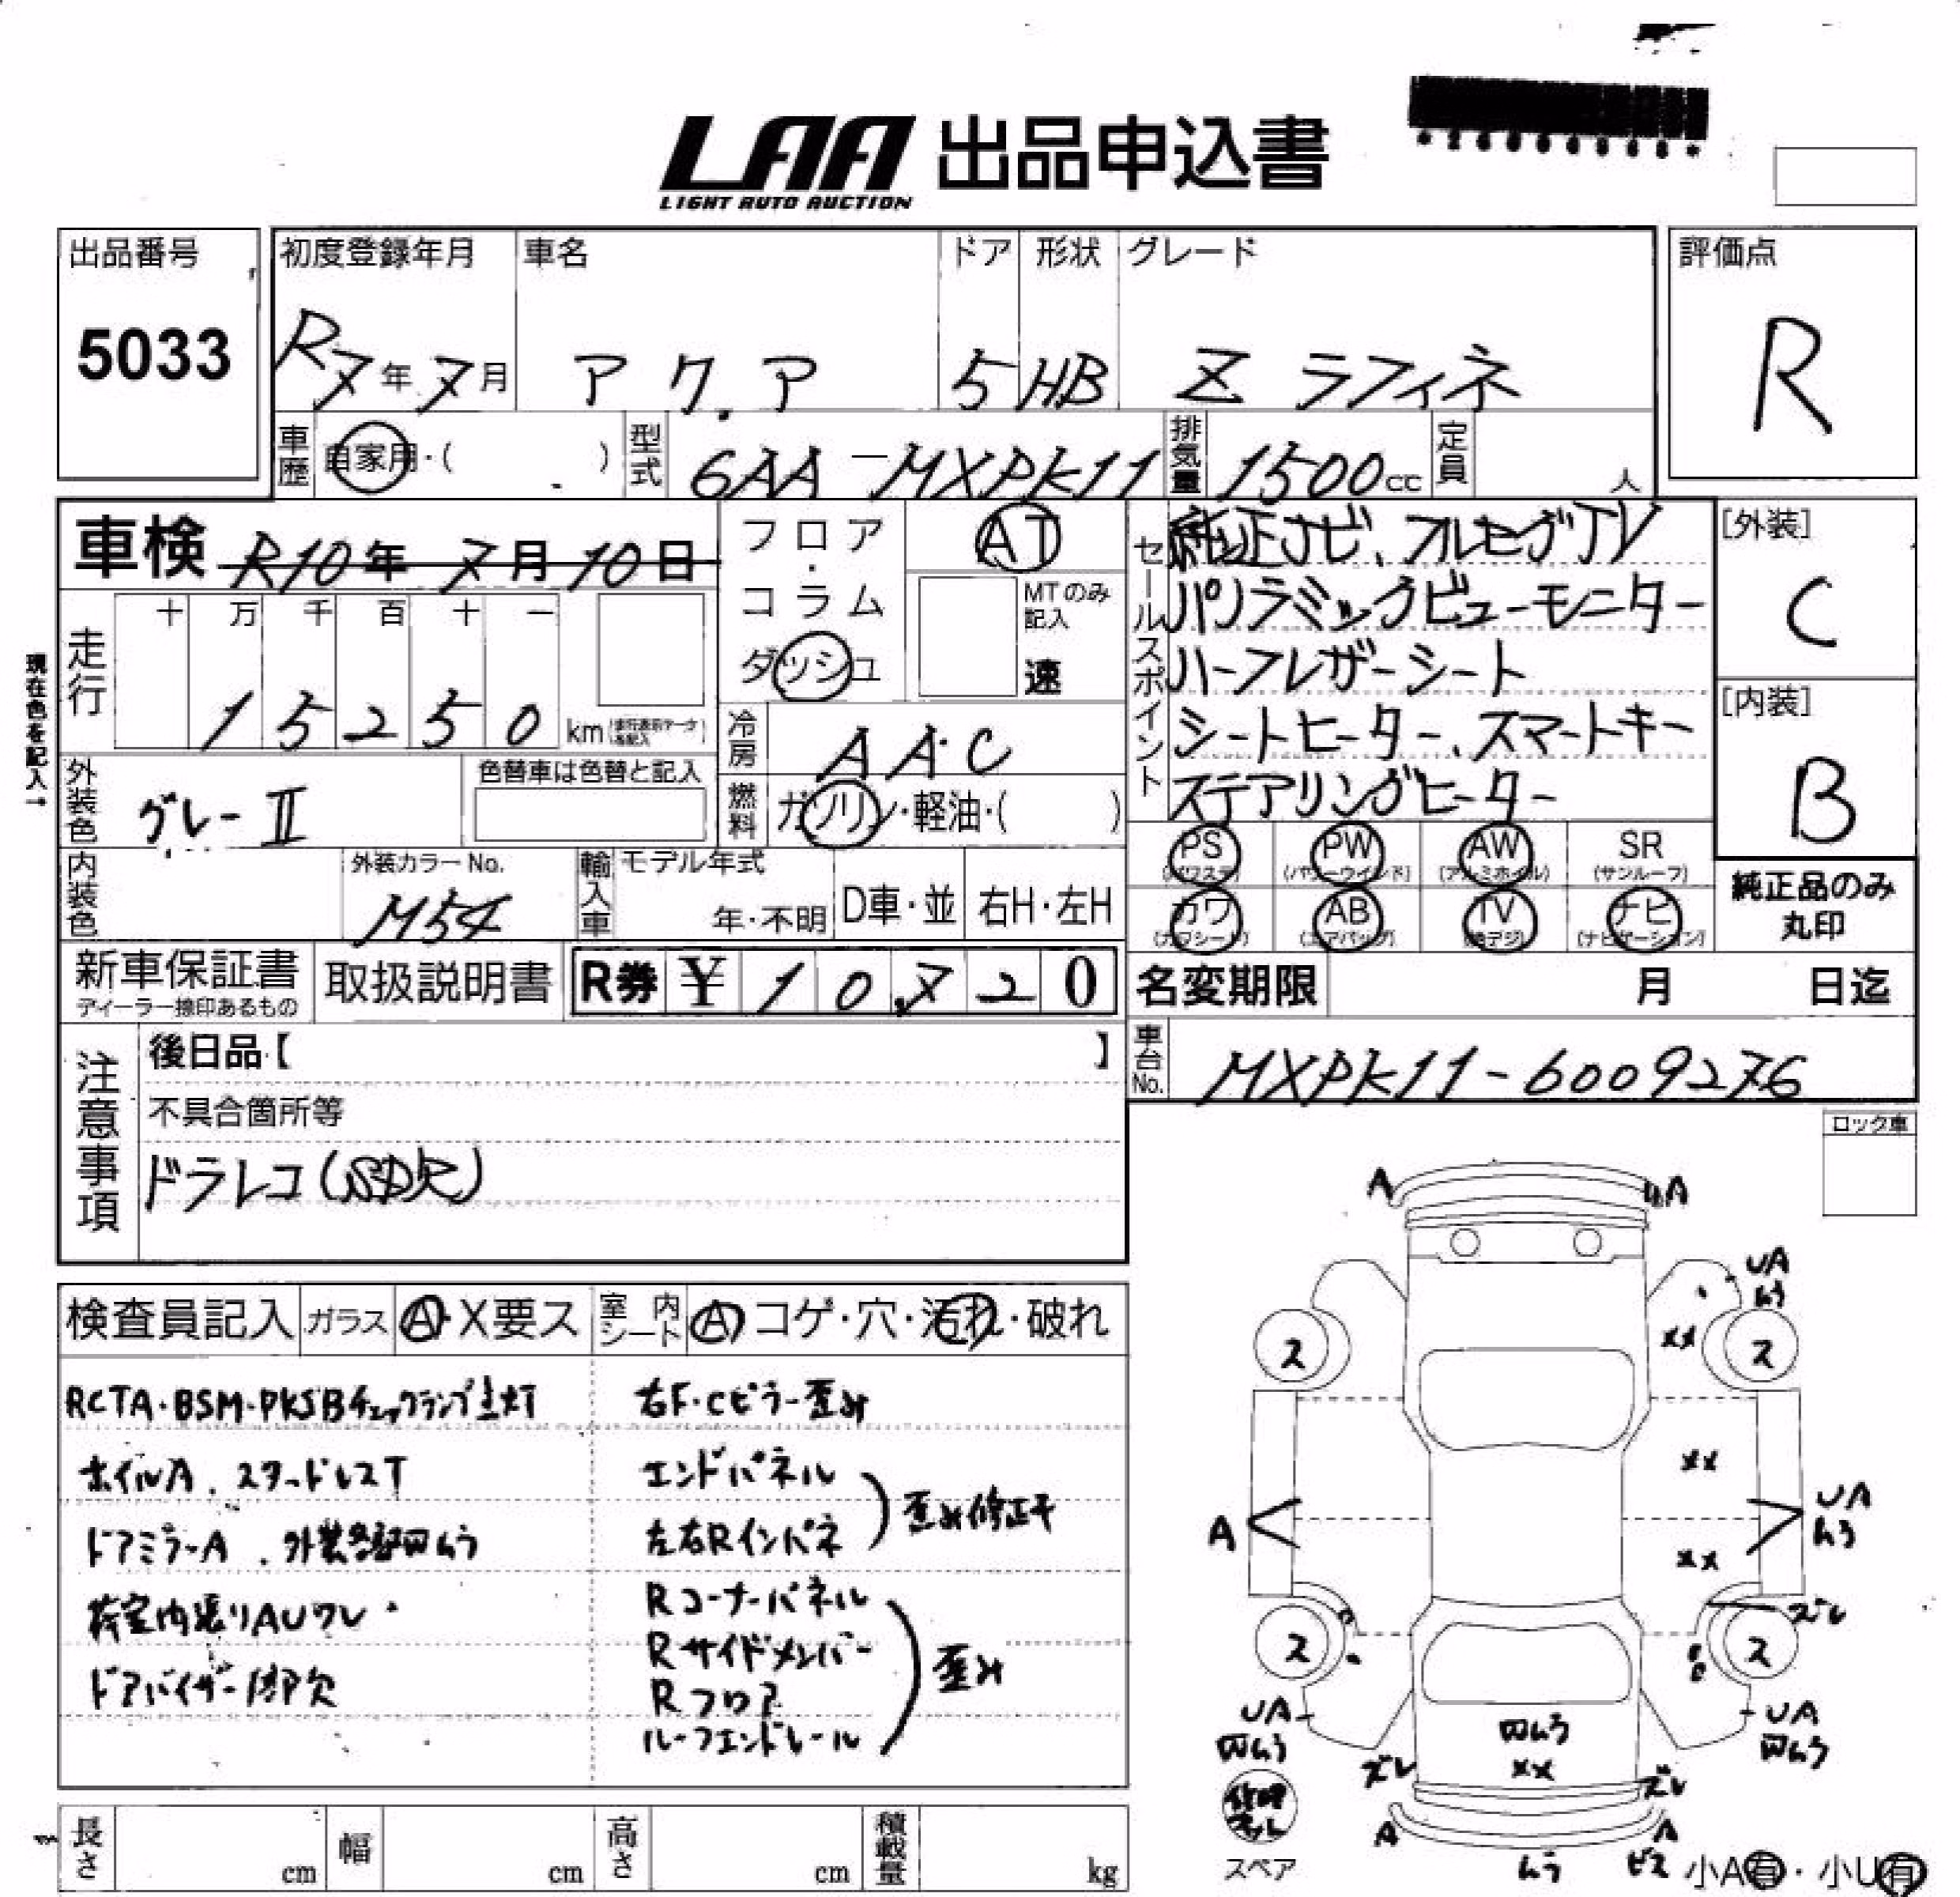 LAA 出品申込書
LIGHT AUTO AUCTION
出品番号
5033
初度登録年月
R7年7月
車名
アクア
ドア
5
形状
HB
グレード
Z ラフィネ
評価点
R
車歴
自家用・( )
型式
6AA-MXPK11
排気量
1500cc
定員
人
車検 R10年7月10日
フロア・コラム
ダッシュ
AT
MTのみ記入
速
セールスポイント
純正ナビ、フルセグTV
パノラミックビューモニター
ハーフレザーシート
シートヒーター、スマートキー
ステアリングヒーター
[外装]
C
[内装]
B
現在色を記入→
走行
十 万 千 百 十 一
1 5 2 5 0 km
冷房
AAC
燃料
ガソリン・軽油・( )
外装色
グレーⅡ
色替車は色替と記入
内装色
外装カラーNo.
M54
輸入車
モデル年式
年・不明
D車・並
右H・左H
PS PW AW SR
(パワステ) (パワーウインド) (アルミホイル) (サンルーフ)
カワ AB TV ナビ
(カワシート) (エアバッグ) (地デジ) (ナビゲーション)
純正品のみ
丸印
新車保証書
ディーラー捺印あるもの
取扱説明書
R券 ¥ 10,720
名変期限 月 日迄
車台No.
MXPK11-6009276
注意事項
後日品【 】
不具合箇所等
ドラレコ(SD欠)
ロック車
検査員記入
ガラス
A・X要ス
室内シート
A コゲ・穴・汚れ・破れ
RCTA・BSM・PKSBチェックランプ点灯
ホイルA、スタッドレスT
ドアミラーA、外装各部凹ムラ
荷室内張りAUワレ
ドアバイザー1部欠
右F・Cピラー歪み
エンドパネル
左右Rインパネ
歪み修正キ
Rコーナーパネル
Rサイドメンバー
Rフロア
ルーフエンドレール
歪み
A
A
UA
ムラ
XX
2
2
XX
A
UA
ムラ
XX
ズレ
2
2
UA
凹ムラ
UA
凹ムラ
凹ムラ
XX
ズレ
ズレ
A
A
ムラ
ビス
スペア
小A有・小U有
長さ cm
幅 cm
高さ cm
積載量 kg